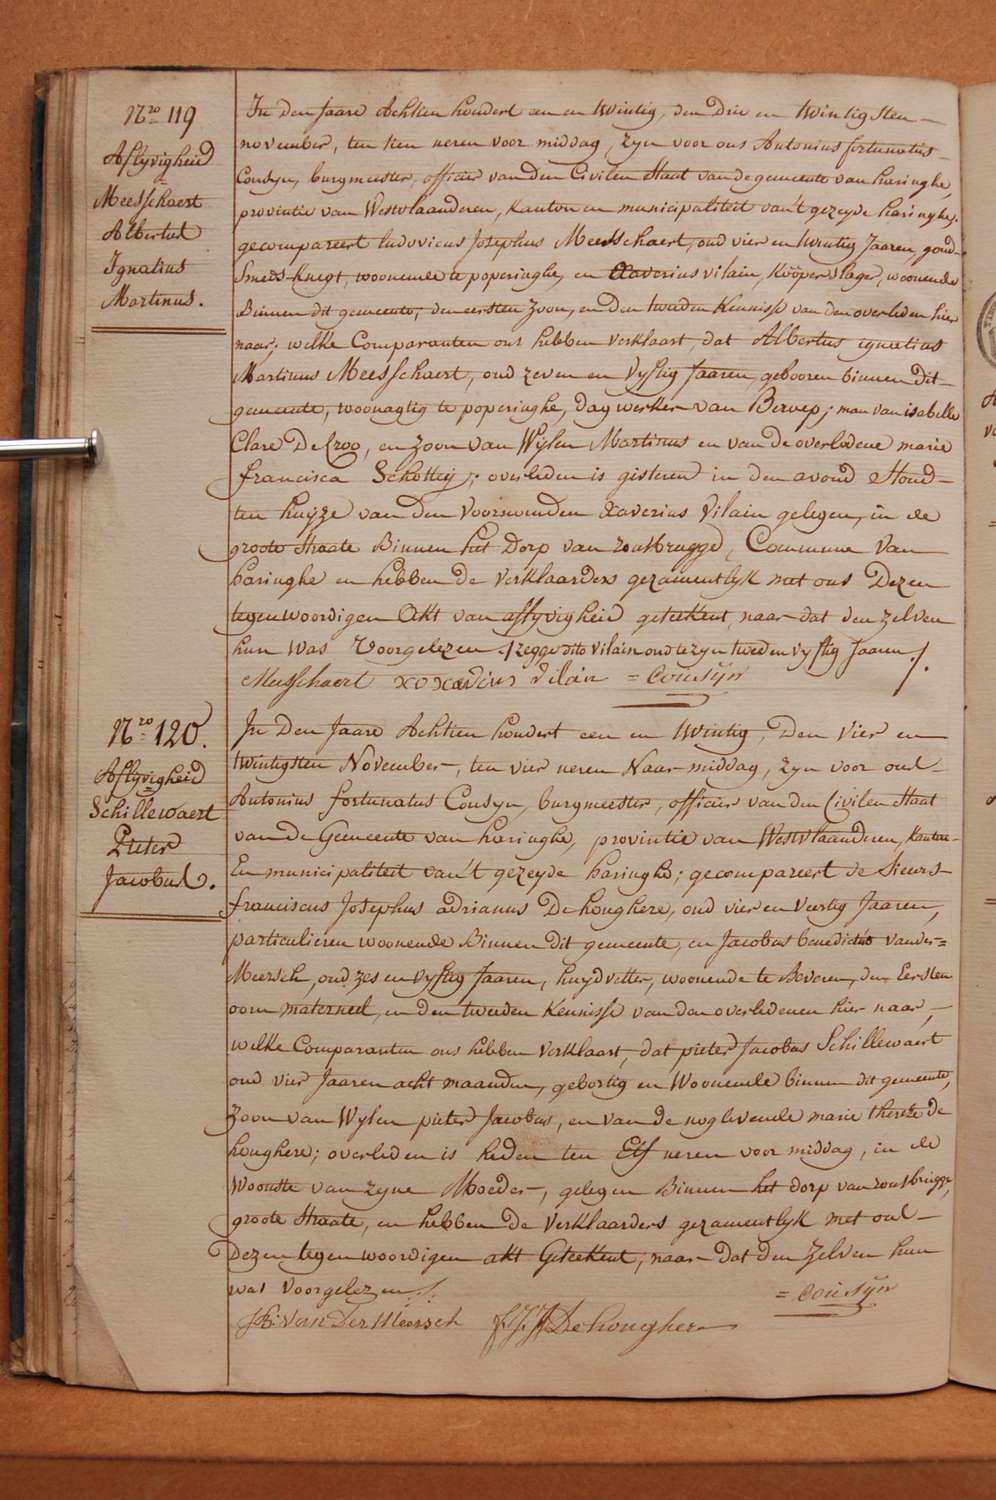 Nro 119
Aflyvigheid
Meesschaert
Albertus
Ignatius
Martinus.
In den Jaare Achtien hondert een en twintig, den Drie en twintigsten
november, ten tien ueren voor middag, zyn voor ons Antonius fortunatus
Cousyn, burgmeester, officier van den Civilen Staat van de gemeente van haringhe,
provintie van Westvlaanderen, kanton en municipaliteit van't gezeyde haringhe;
gecompareert ludovicus Josephus Meesschaert, oud vier en twintig Jaaren, goud-
Smeds-knegt, woonende te poperinghe, en Xaverius vilain, kôoperslager, woonende
Binnen dit gemeente, den eersten zoon, en den tweeden kennisse van den overleden hier
naar; welke Comparanten ons hebben verklaart, dat Albertus ignatius
Martinus Meesschaert, oud zeven en vyftig Jaaren, gebooren binnen Dit
gemeente, woonagtig te poperinghe, dagwerker van Beroep; man van isabelle
Clare DeCroo, en zoon van Wylen Martinus en van de overledene marie
francisca Schottey; overleden is gisteren in den avond Stond
ten huyze van den Voornoemden Xaverius Vilain gelegen, in de
groote Straate Binnen het Dorp van rousbrugge, Commune van
haringhe en hebben de verklaarders gezamentlyk met ons Dezen
tegenwoordigen Akt van aflyvigheid geteekent, naar dat den zelven
hun was Voorgelezen. / zegge dito vilain oud te zyn tweeden vyftig Jaaren /.
Meesschaert xoxadius Vilain = Cousÿn
Nro 120.
Aflyvigheid
Schillewaert
Pieter
Jacobus.
In Den Jaare Achtien hondert een en twintig, Den vier en
twintigsten November, ten vier ueren Naar middag, zyn voor ons
Antonius fortunatus Cousyn, burgmeester, officier van den Civilen Staat
van de Gemeente van haringhe, provintie van Westvlaanderen, kanton
En municipaliteit van't gezeyde haringhe; gecompareert de Sieurs
franciscus Josephus adrianus De houghere, oud vier en veertig Jaaren,
particulieren woonende Binnen dit gemeente, en Jacobus benedictus vander=
Meersch, oud zes en vyftig Jaaren, huydvetter, woonende te Beveren, den Eersten
oom materneel, en den tweeden kennisse van den overledenen hier naar,
welke Comparanten ons hebben verklaart, dat pieter Jacobus Schillewaert
oud vier Jaaren acht maanden, gebortig en Woonende binnen dit gemeente,
zoon van Wylen pieter Jacobus, en van de nog levende marie therese De
houghere; overleden is heden ten Elf ueren voor middag, in de
Woonste van zyne Moeder, gelegen Binnen het dorp van rousbrugge,
groote Straate, en hebben de verklaarders gezamentlyk met ons
Dezen tegenwoordigen akt Geteekent, naar dat den zelven hun
was voorgelezen /.
= Cousÿn
J:B: van Der Meersch f. J. A DeHoughere